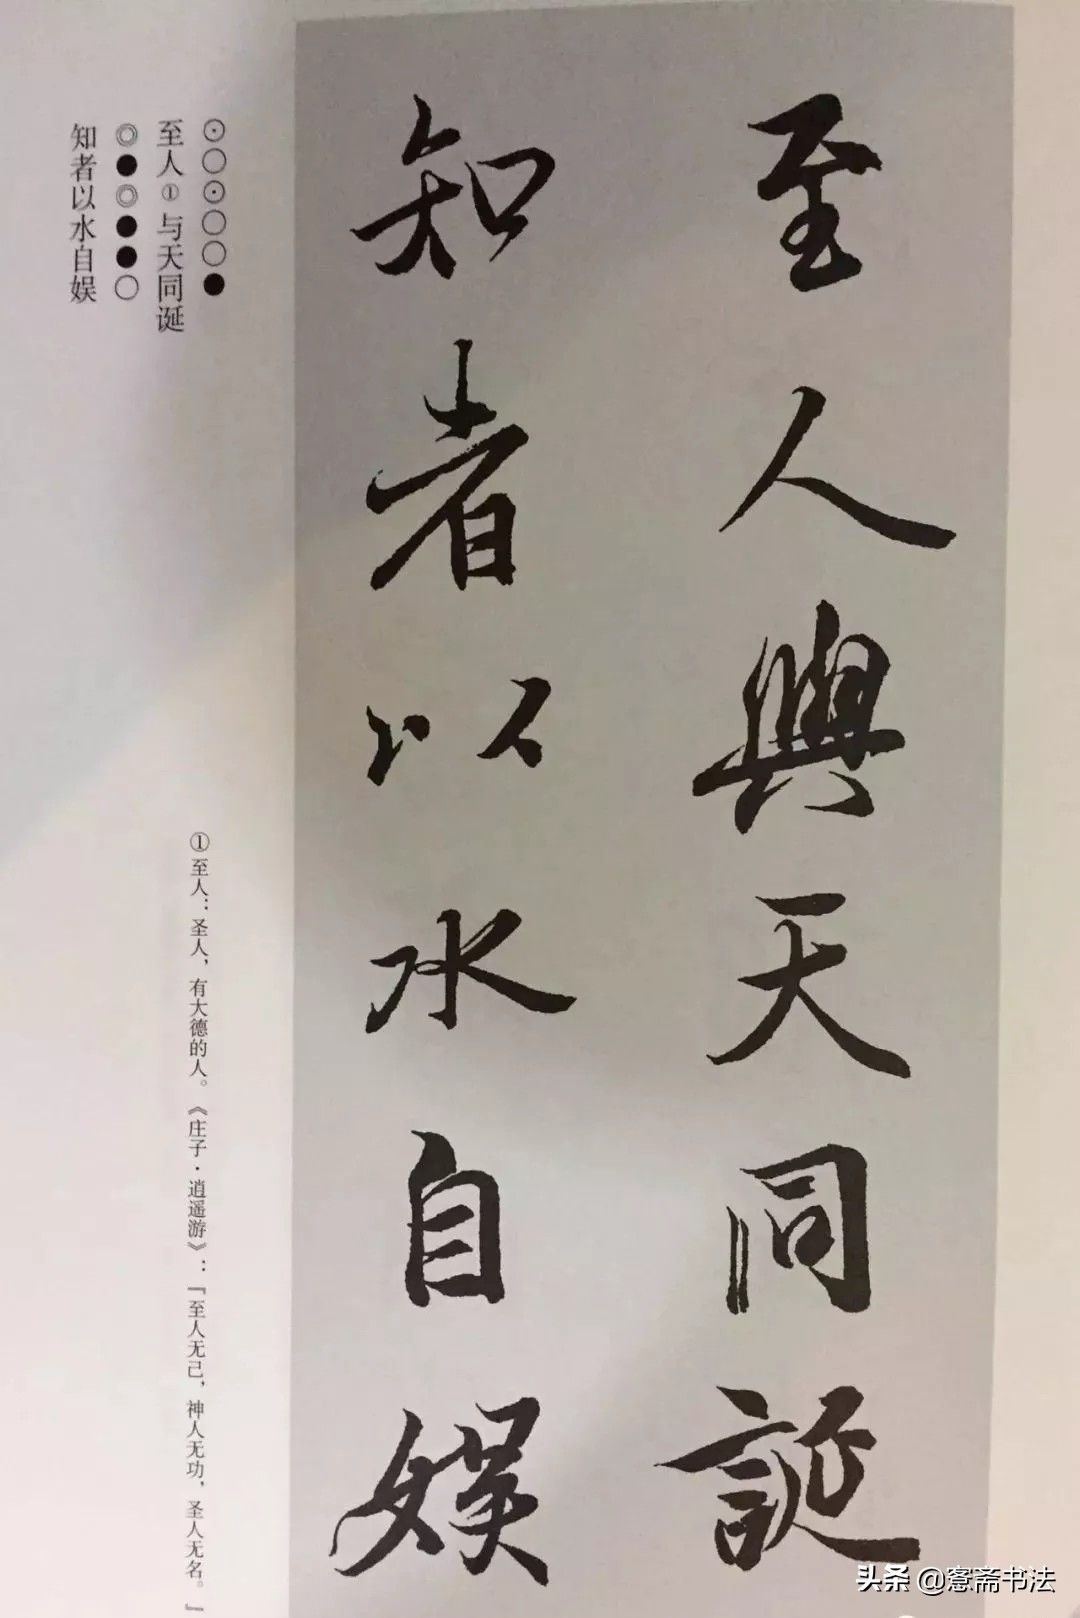 至人與天同誕
知者以水自娱
⊙○⊙○○●
至人①与天同诞
◎●◎●●○
知者以水自娱
①至人：圣人，有大德的人。《庄子·逍遥游》：『至人无己，神人无功，圣人无名。』
头条@窓斋书法